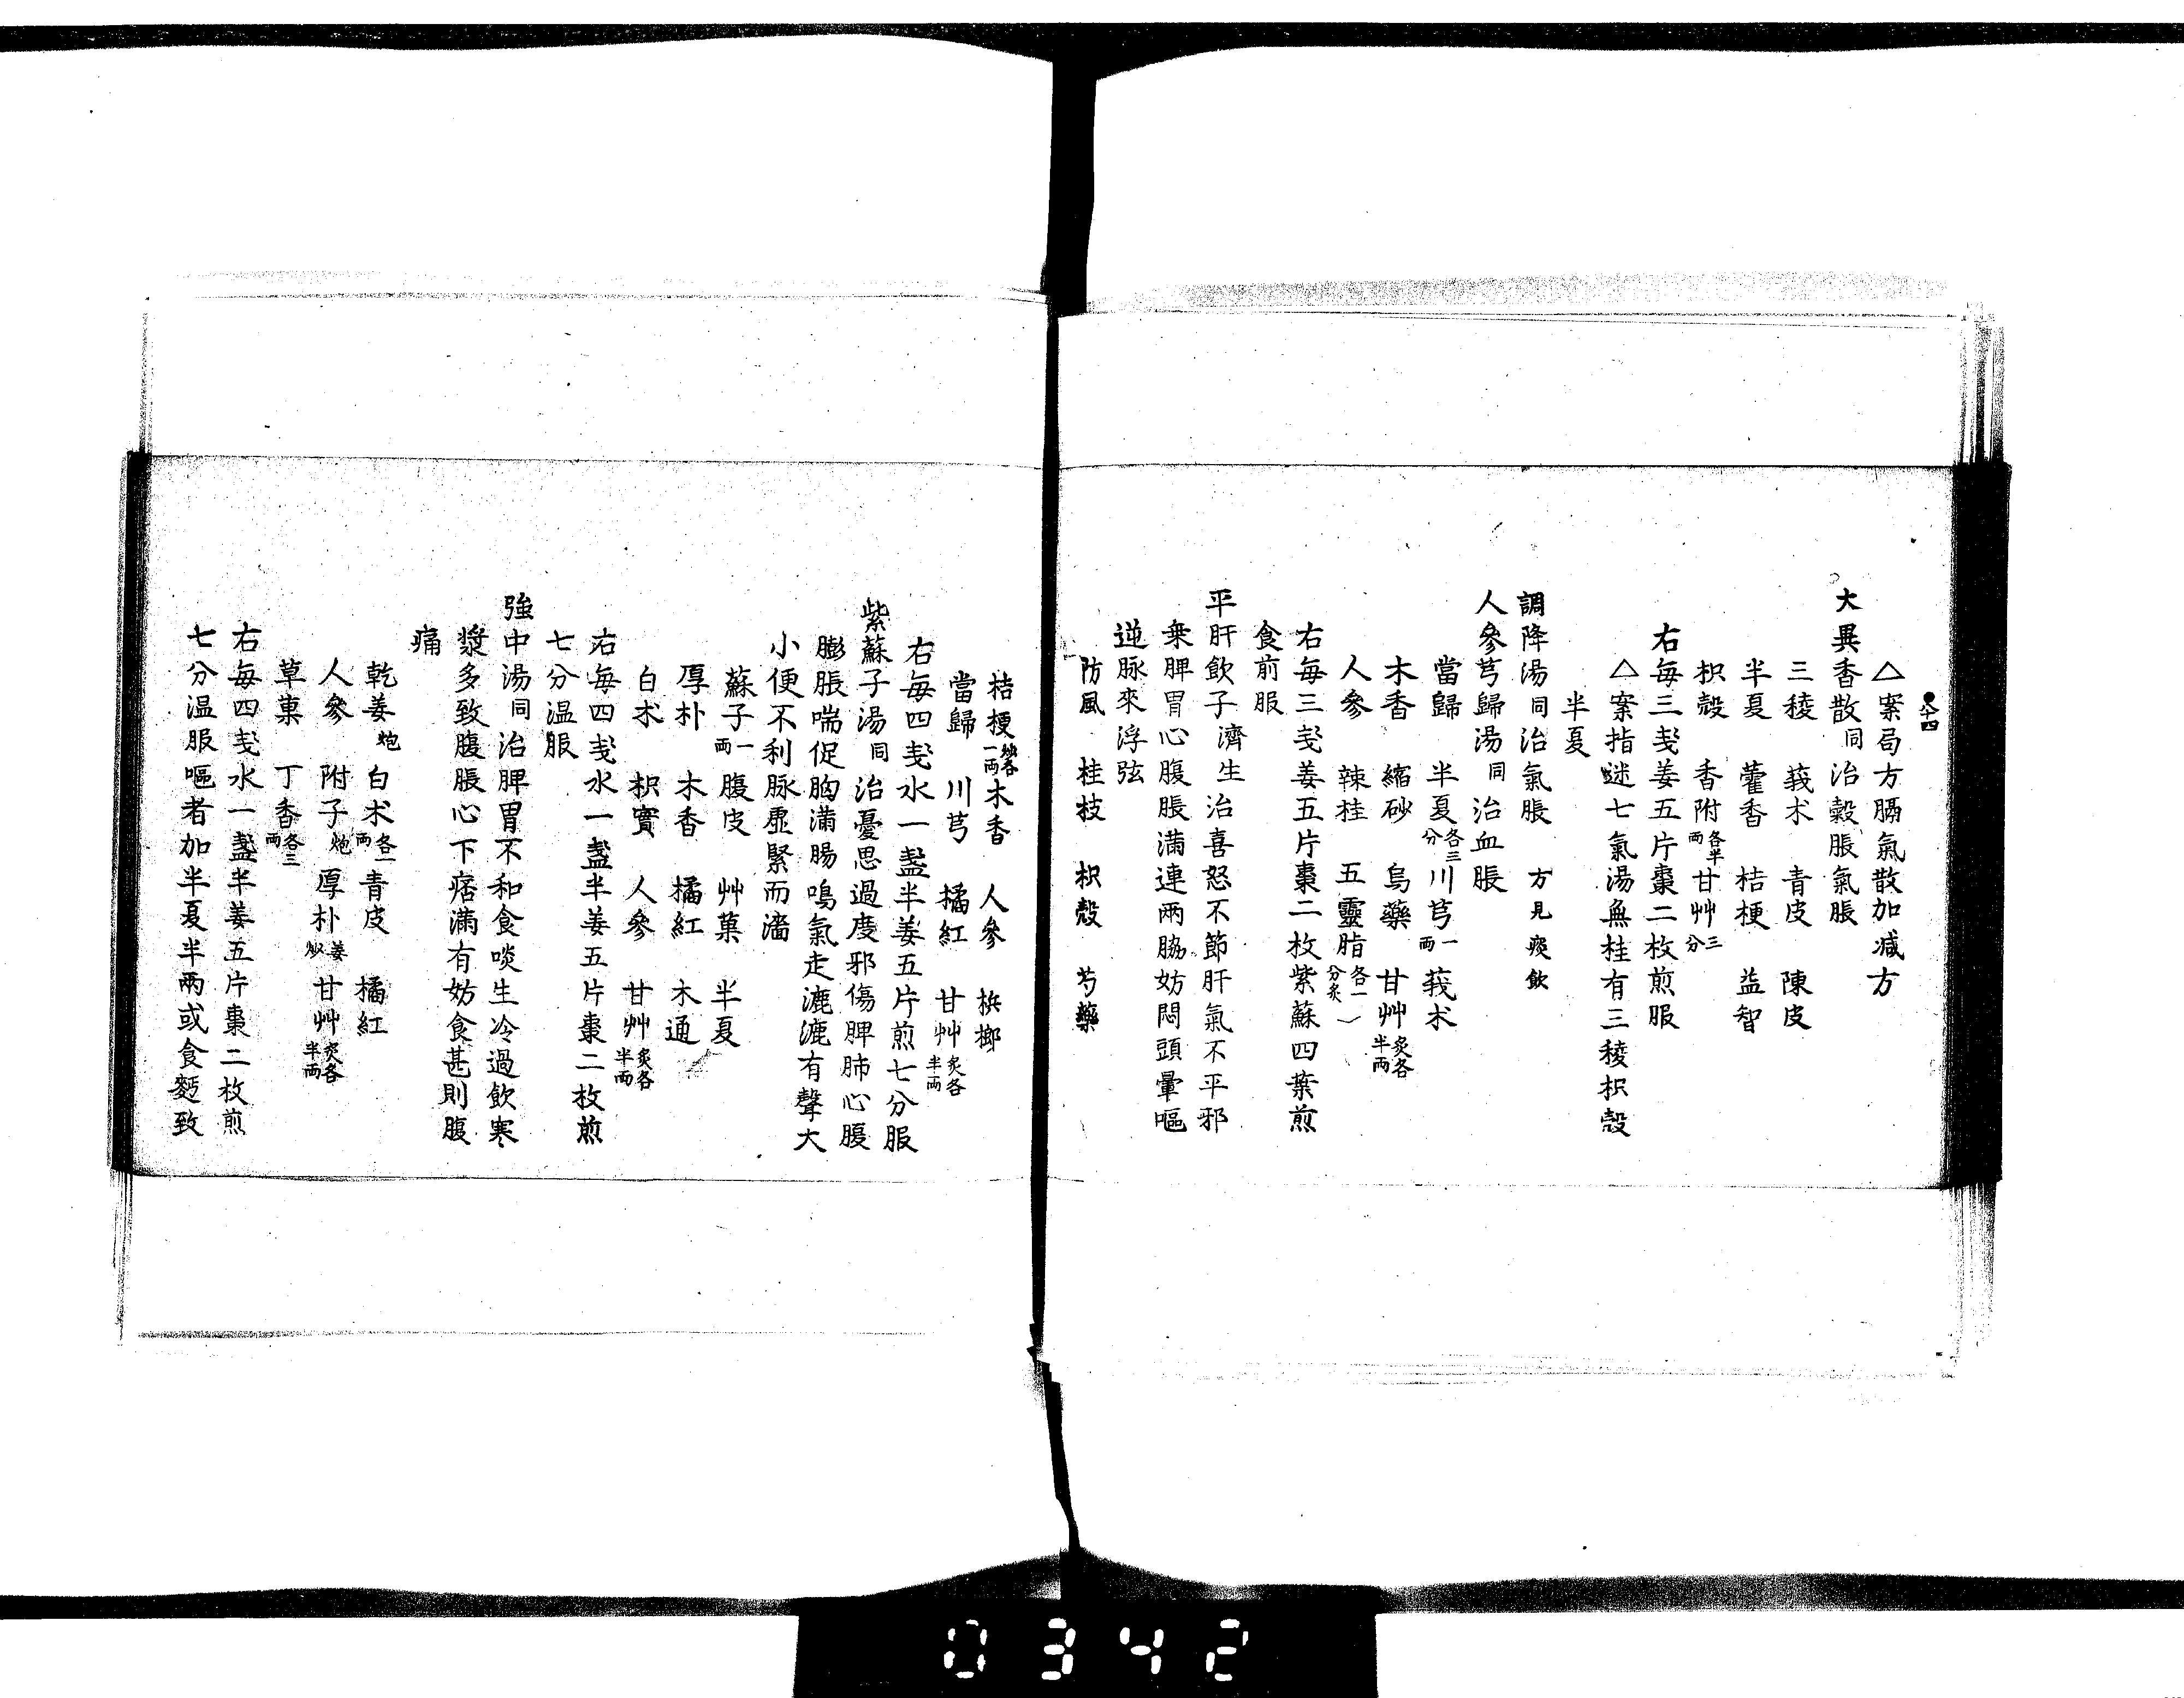 ●六十四
△案局方膈氣散加減方
大異香散同治穀脹氣脹
三稜　莪朮　青皮　陳皮
半夏　藿香　桔梗　益智
枳殻　香附各半兩甘艸三分
右毎三戔姜五片棗二枚煎服
△案指迷七氣湯無桂有三稜枳殻
半夏
調降湯同治氣脹　方見痰飲
人參芎歸湯同治血脹
當歸　半夏各三分川芎一兩莪朮
木香　縮砂　烏藥　甘艸炙各半兩
人參　辣桂　五靈脂各一分炙
右毎三戔姜五片棗二枚紫蘇四葉煎
食前服
平肝飲子濟生治喜怒不節肝氣不平邪
乗脾胃心腹脹満連兩脇妨悶頭暈嘔
逆脉來浮弦
防風　桂枝　枳殻　芍藥
桔梗炒各一兩木香　人參　梹榔
當歸　川芎　橘紅　甘艸炙各半兩
右毎四戔水一盞半姜五片煎七分服
紫蘇子湯同治憂思過度邪傷脾肺心腹
膨脹喘促胸満腸鳴氣走漉漉有聲大
小便不利脉虚緊而濇
蘇子一兩腹皮　艸菓　半夏
厚朴　木香　橘紅　木通
白朮　枳實　人參　甘艸炙各半兩
右毎四戔水一盞半姜五片棗二枚煎
七分温服
強中湯同治脾胃不和食啖生冷過飲寒
漿多致腹脹心下痞満有妨食甚則腹
痛
乾姜炮　白朮各一兩青皮　橘紅
人參　附子炮　厚朴姜炒　甘艸炙各半兩
草菓　丁香各三兩
右毎四戔水一盞半姜五片棗二枚煎
七分温服嘔者加半夏半兩或食麪致
0342